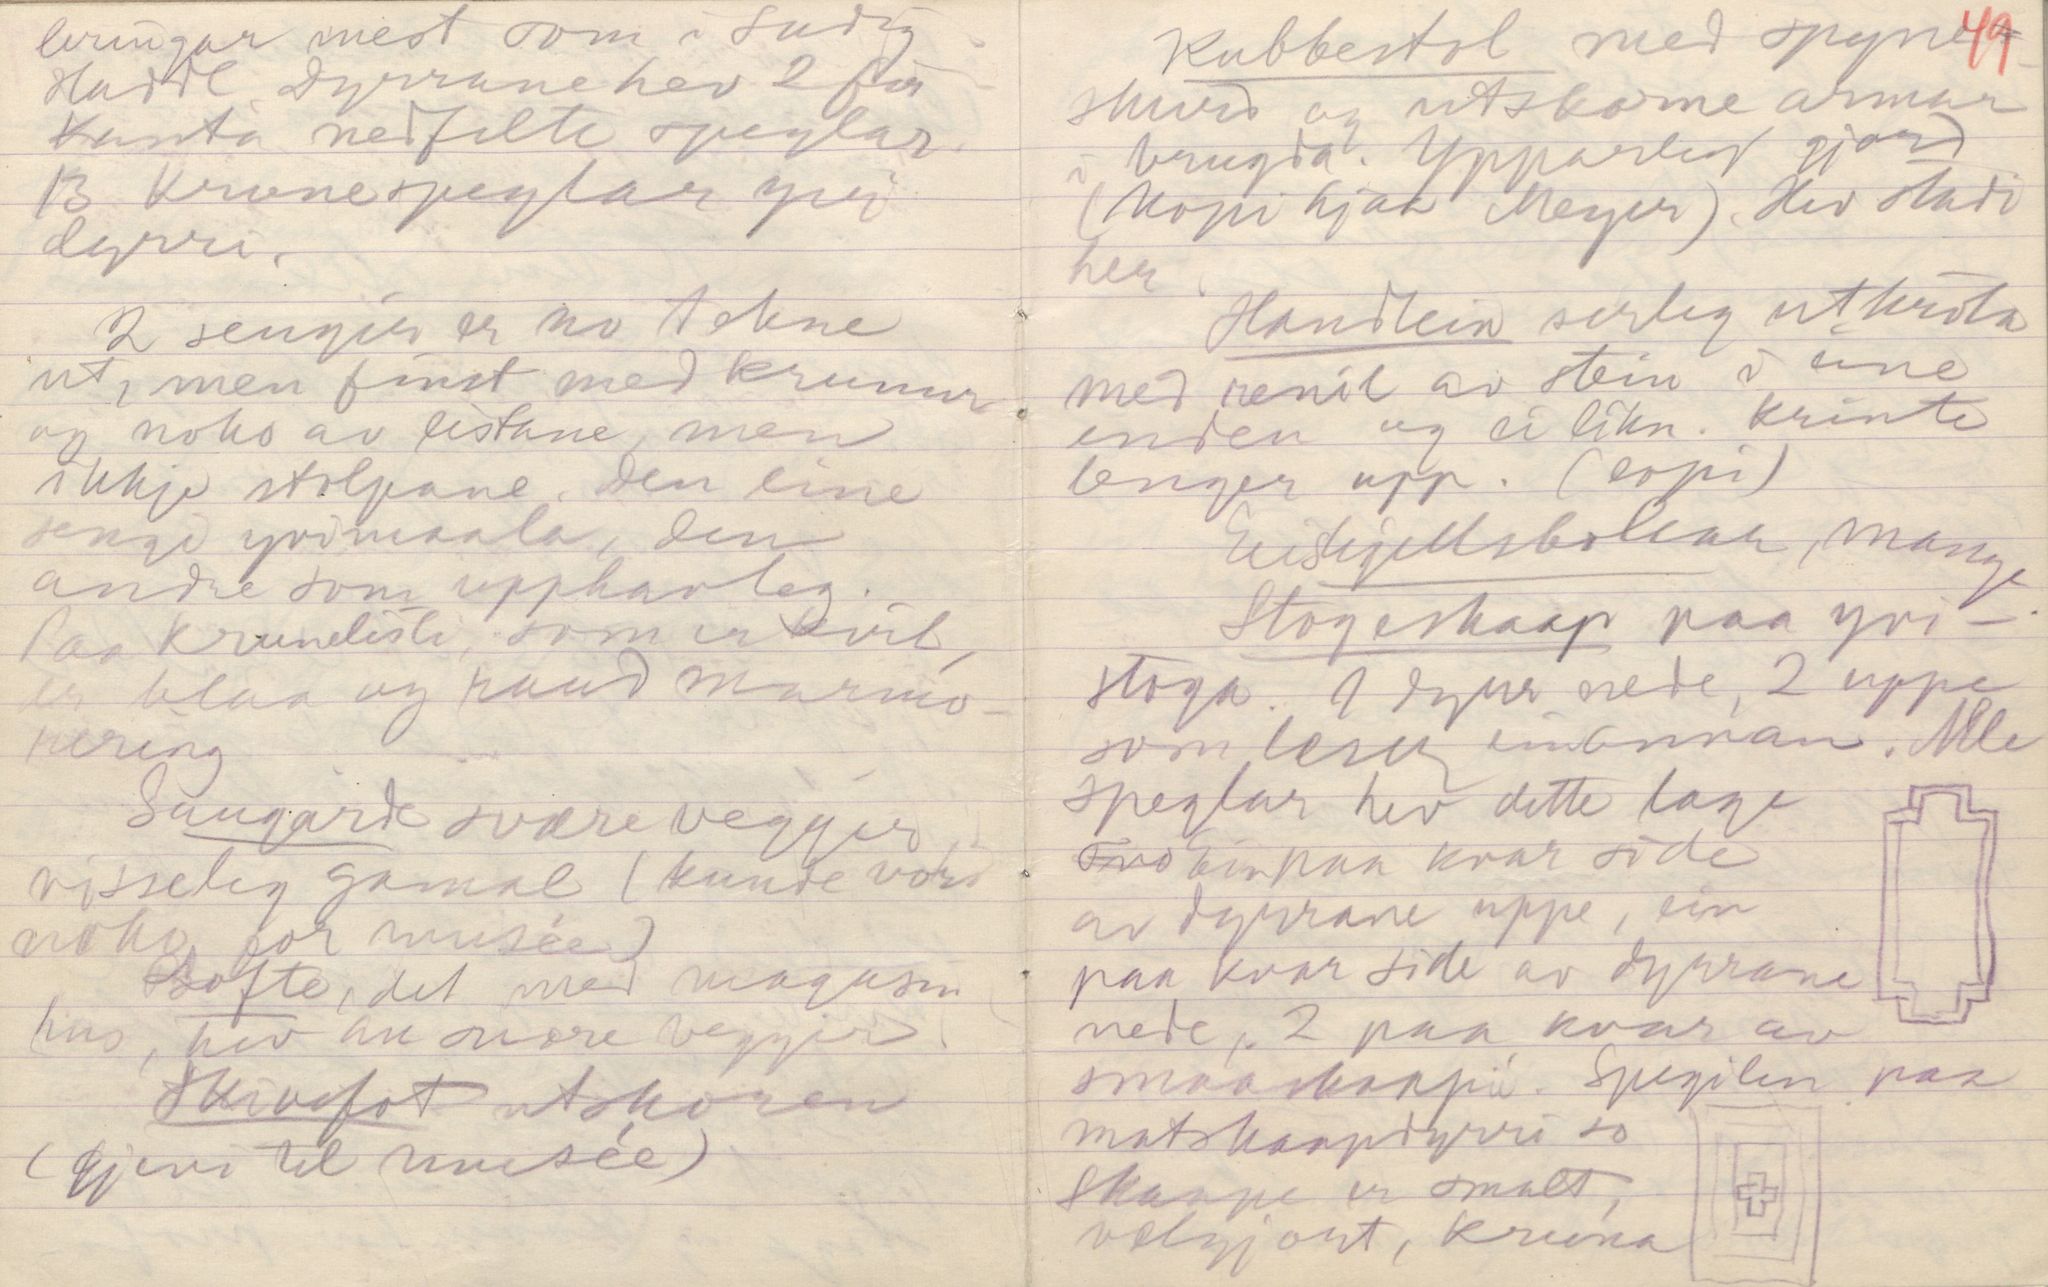 leringar mest som i Sud
Haddl. Dyrrane hev 2 fir
kanta nedfelte speglar.
13 Krunespeglar yvi
dyrri.
2 sengjer er no tekne
ut, men finst med krunur
og noko av listane, men
ikkje stolpane. Den eine
sengi yvimaala, den
andre som upphavleg.
Paa krunelisti, som er kvit,
er blaa og raud marmo-
rering
Saugarde svære veggjer
visseleg gamal (kunde vori
noko for musée)
Lofte, det med magasin
hus, hev au svære veggjer.
Skivefot utskoren
(gjevi til musée)
49
Kubbestol med
skurd og utskorne armar
i brugda. Ypparleg gjord
(Kopi hjaa Meyer). Hev stadi
her
Handlein serleg utkrota
med renil av stein i eine
enden og ei likn. krinte
lenger upp. (copi)
mange
Stogeskaap paa yvi-
stoga. 1 dyrr nede, 2 uppe
som læser einannan. Alle
speglar hev dette lage
ein paa kvar side
av dyrrane uppe, ein
paa kvar side av dyrrane
nede, 2 paa kvar av
smaaskaapi. Spegilen paa
matskaapdyrri so
Skaape er smalt,
velgjort, kruna